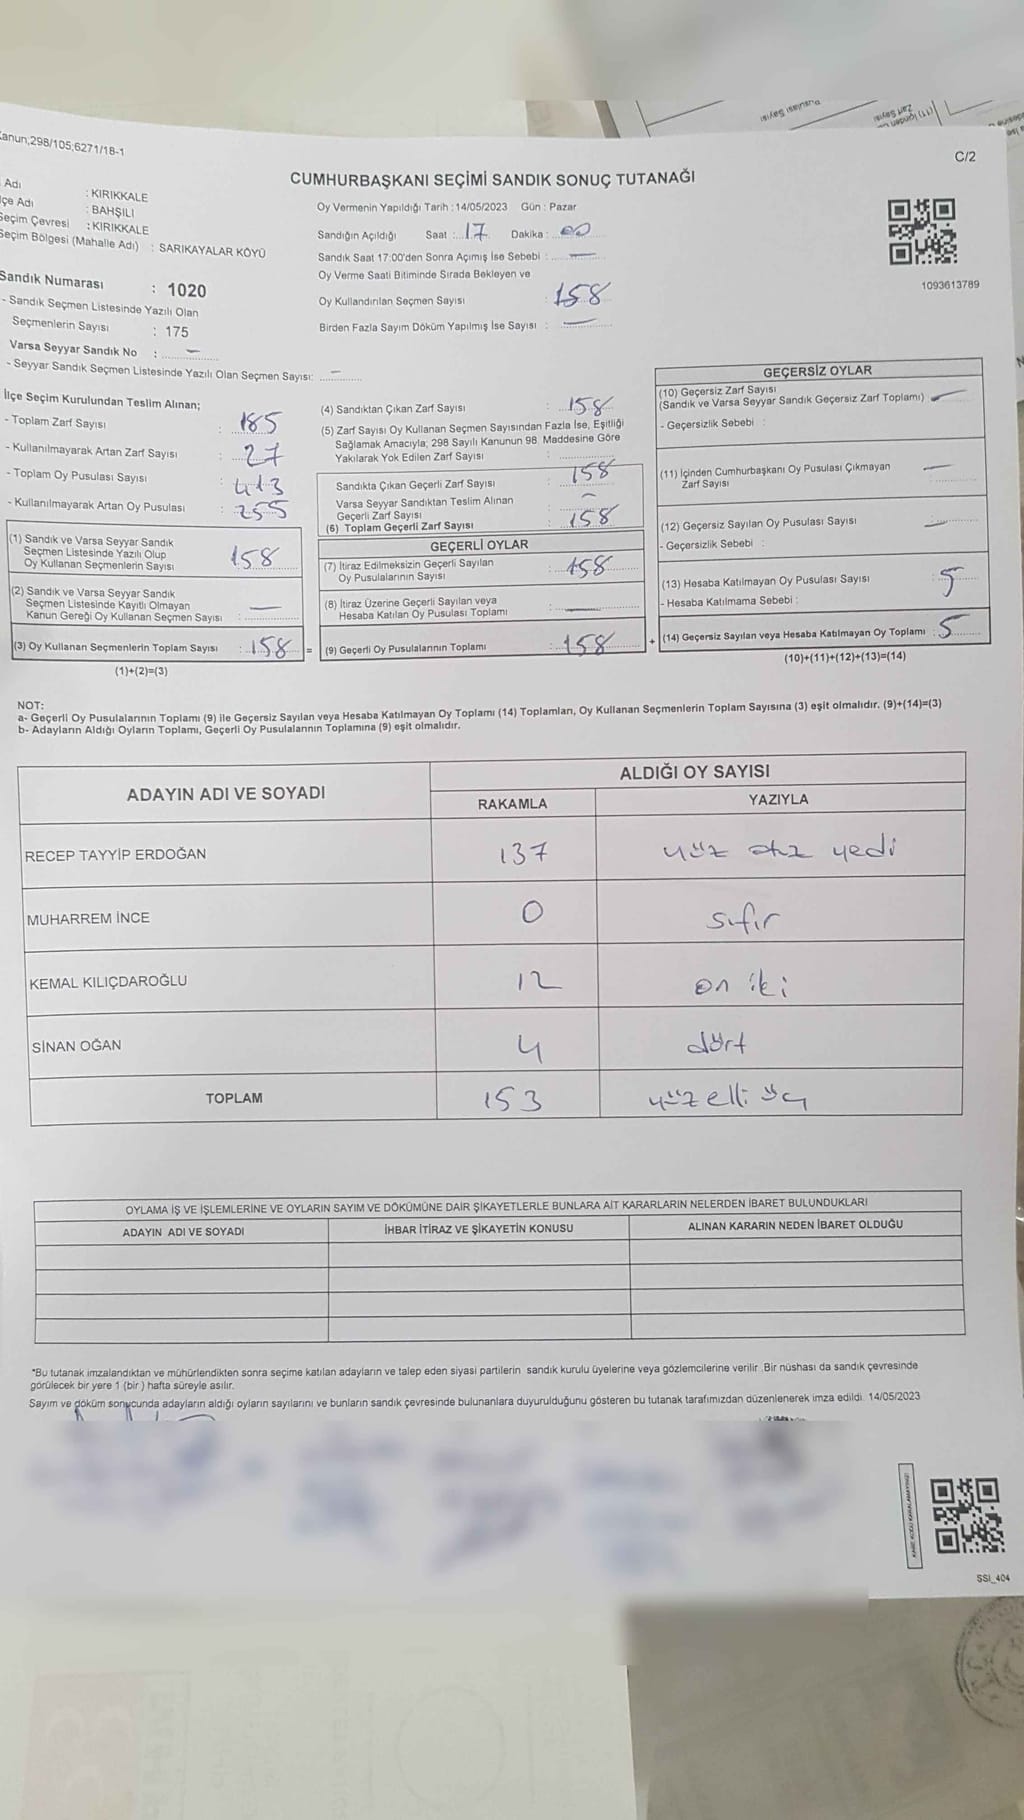 Kanun,298/105;6271/18-1
C/2
CUMHURBAŞKANI SEÇİMİ SANDIK SONUÇ TUTANAĞI
Adı : KIRIKKALE
lçe Adı : BAHŞILI
Seçim Çevresi : KIRIKKALE
Seçim Bölgesi (Mahalle Adı) : SARIKAYALAR KÖYÜ
Sandık Numarası : 1020
- Sandık Seçmen Listesinde Yazılı Olan
Seçmenlerin Sayısı : 175
Varsa Seyyar Sandık No : —
- Seyyar Sandık Seçmen Listesinde Yazılı Olan Seçmen Sayısı: —
Oy Vermenin Yapıldığı Tarih : 14/05/2023 Gün : Pazar
Sandığın Açıldığı Saat : 17 Dakika : 00
Sandık Saat 17:00'den Sonra Açımış İse Sebebi : —
Oy Verme Saati Bitiminde Sırada Bekleyen ve
Oy Kullandırılan Seçmen Sayısı : 158
Birden Fazla Sayım Döküm Yapılmış İse Sayısı : —
1093613789
İlçe Seçim Kurulundan Teslim Alınan;
- Toplam Zarf Sayısı : 185
- Kullanılmayarak Artan Zarf Sayısı : 27
- Toplam Oy Pusulası Sayısı : 413
- Kullanılmayarak Artan Oy Pusulası : 255
(1) Sandık ve Varsa Seyyar Sandık
Seçmen Listesinde Yazılı Olup
Oy Kullanan Seçmenlerin Sayısı 158
(2) Sandık ve Varsa Seyyar Sandık
Seçmen Listesinde Kayıtlı Olmayan
Kanun Gereği Oy Kullanan Seçmen Sayısı : —
(3) Oy Kullanan Seçmenlerin Toplam Sayısı : 158 =
(1)+(2)=(3)
(4) Sandıktan Çıkan Zarf Sayısı : 158
(5) Zarf Sayısı Oy Kullanan Seçmen Sayısından Fazla İse, Eşitliği
Sağlamak Amacıyla; 298 Sayılı Kanunun 98. Maddesine Göre
Yakılarak Yok Edilen Zarf Sayısı :
Sandıkta Çıkan Geçerli Zarf Sayısı : 158
Varsa Seyyar Sandıktan Teslim Alınan
Geçerli Zarf Sayısı : —
(6) Toplam Geçerli Zarf Sayısı : 158
GEÇERLİ OYLAR
(7) İtiraz Edilmeksizin Geçerli Sayılan
Oy Pusulalarının Sayısı : 158
(8) İtiraz Üzerine Geçerli Sayılan veya
Hesaba Katılan Oy Pusulası Toplamı : —
(9) Geçerli Oy Pusulalarının Toplamı : 158 +
GEÇERSİZ OYLAR
(10) Geçersiz Zarf Sayısı
(Sandık ve Varsa Seyyar Sandık Geçersiz Zarf Toplamı) : —
- Geçersizlik Sebebi :
(11) İçinden Cumhurbaşkanı Oy Pusulası Çıkmayan
Zarf Sayısı —
(12) Geçersiz Sayılan Oy Pusulası Sayısı : —
- Geçersizlik Sebebi :
(13) Hesaba Katılmayan Oy Pusulası Sayısı : 5
- Hesaba Katılmama Sebebi :
(14) Geçersiz Sayılan veya Hesaba Katılmayan Oy Toplamı : 5
(10)+(11)+(12)+(13)=(14)
NOT:
a- Geçerli Oy Pusulalarının Toplamı (9) ile Geçersiz Sayılan veya Hesaba Katılmayan Oy Toplamı (14) Toplamları, Oy Kullanan Seçmenlerin Toplam Sayısına (3) eşit olmalıdır. (9)+(14)=(3)
b- Adayların Aldığı Oyların Toplamı, Geçerli Oy Pusulalarının Toplamına (9) eşit olmalıdır.
ADAYIN ADI VE SOYADI
ALDIĞI OY SAYISI
RAKAMLA YAZIYLA
RECEP TAYYİP ERDOĞAN 137 yüz otuz yedi
MUHARREM İNCE 0 sıfır
KEMAL KILIÇDAROĞLU 12 on iki
SİNAN OĞAN 4 dört
TOPLAM 153 yüz elli üç
OYLAMA İŞ VE İŞLEMLERİNE VE OYLARIN SAYIM VE DÖKÜMÜNE DAİR ŞİKAYETLERLE BUNLARA AİT KARARLARIN NELERDEN İBARET BULUNDUKLARI
ADAYIN ADI VE SOYADI İHBAR İTİRAZ VE ŞİKAYETİN KONUSU ALINAN KARARIN NEDEN İBARET OLDUĞU
*Bu tutanak imzalandıktan ve mühürlendikten sonra seçime katılan adayların ve talep eden siyasi partilerin sandık kurulu üyelerine veya gözlemcilerine verilir .Bir nüshası da sandık çevresinde
görülecek bir yere 1 (bir ) hafta süreyle asılır.
Sayım ve döküm sonucunda adayların aldığı oyların sayılarını ve bunların sandık çevresinde bulunanlara duyurulduğunu gösteren bu tutanak tarafımızdan düzenlenerek imza edildi. 14/05/2023
KARE KODU KARALAMAYINIZ!
SSI_404